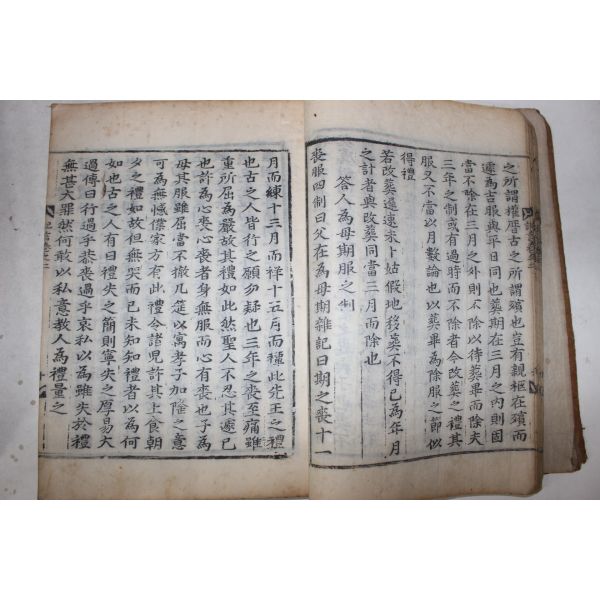 之所謂攢厝古之所謂殯也豈有親柩在殯而
遽爲吉服與平日同也葬期在三月之內則固
當不除在三月之外則不除以待葬畢而除夫
三年之制或有過時而不除者令改葬之禮其
服又不當以月數論也以葬畢爲除服之節似
得禮
若改葬遲速未卜姑假地移葬不得已爲年月
之計者與改葬同當三月而除也
答人爲母期服之制
喪服四制曰父在爲母期雜記曰期之喪十一
月而練十三月而祥十五月而禫此先王之禮
也古之人皆行之願勿疑也三年之喪至痛雖
重所屈爲嚴故其禮如此然聖人不忍其遽已
也許爲心喪心喪者身無服而心有喪也子爲
母其服雖屈當不撤几筵以寓孝子加隆之意
可爲無憾僕家方有此禮令諸兒許其上食朝
夕之禮如故但無哭而已未知知禮者以爲何
如也古之人有曰禮失之簡則寧失之厚易大
過傳曰行過乎恭喪過乎哀私以爲雖失於禮
無甚大罪然何敢以私意教人爲禮量之